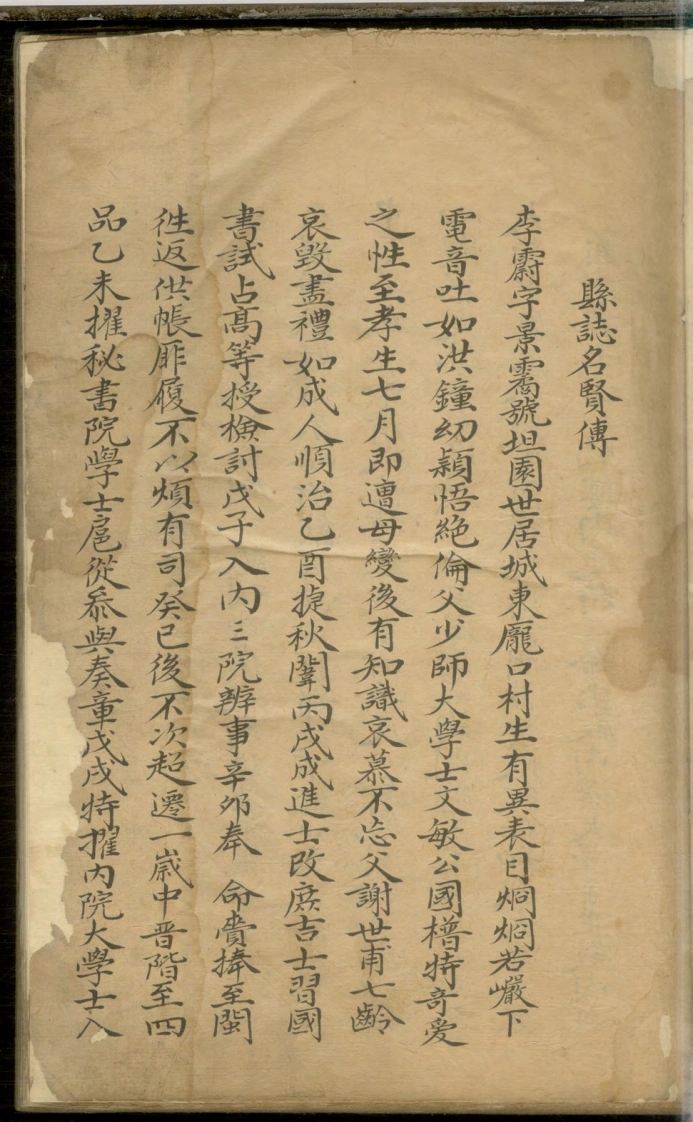 縣誌名賢傳
李霨字景霱號坦園世居城東龎口村生有異表目烱烱若巖下
電音吐如洪鐘幼穎悟絶倫父少師大學士文敏公國𣚴特奇愛
之性至孝生七月即遭母變後有知識哀慕不忘父謝世甫七齡
哀毀盡禮如成人順治乙酉捷秋闈丙戌成進士改庶吉士習國
書試占髙等授檢討戊子入内三院辨事辛夘奉 命賫捧至閩
徃返供帳雁履不以煩有司癸巳後不次超遷一歲中晋階至四
品乙未擢秘書院學士扈從叅與奏章戊戌特擢内院大學士入